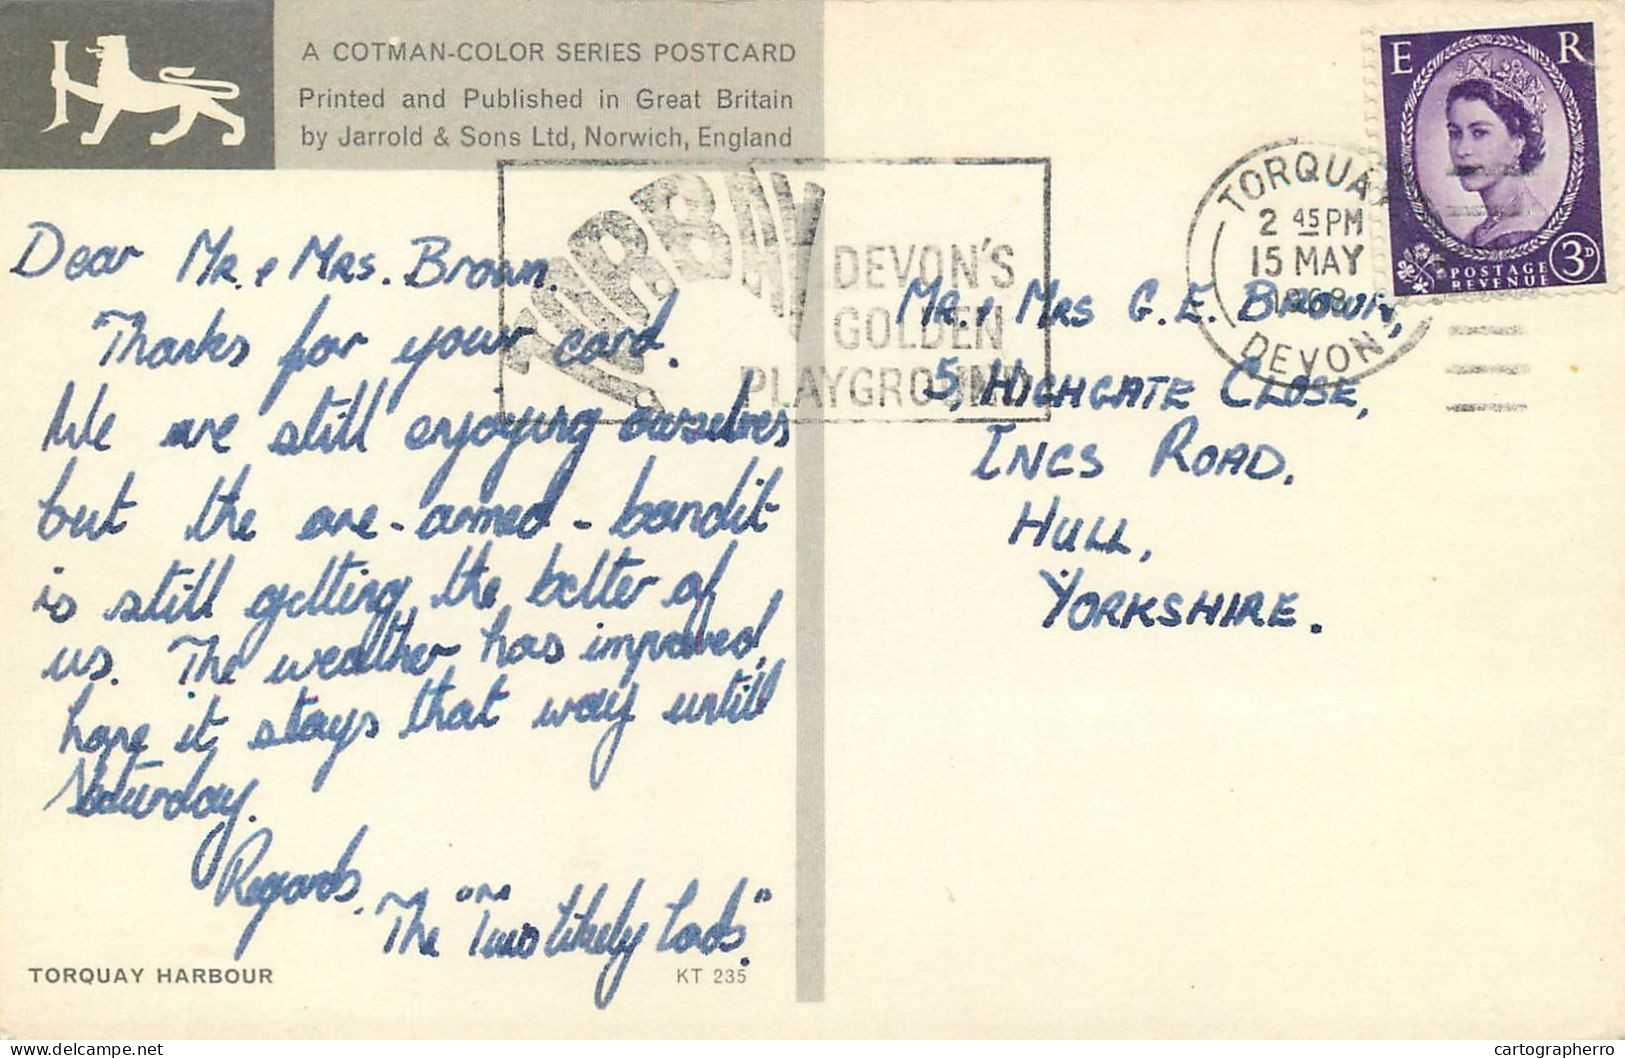 A COTMAN-COLOR SERIES POSTCARD
Printed and Published in Great Britain
by Jarrold & Sons Ltd, Norwich, England
Dear Mr. & Mrs. Brown.
Thanks for your card.
We are still enjoying ourselves
but the one-armed-bandit
is still getting the better of
us. The weather has improved,
hope it stays that way until
Saturday.
Regards.
The "Two Likely Lads".
TORQUAY HARBOUR
KT 235
TORBAY
DEVON'S
GOLDEN
PLAYGROUND
TORQUAY
2 45 PM
15 MAY
1968
DEVON
E R
POSTAGE
REVENUE
3D
MR. & MRS G. E. BROWN,
5, HIGHGATE CLOSE,
INGS ROAD.
HULL,
YORKSHIRE.
delcampe.net
cartographerro